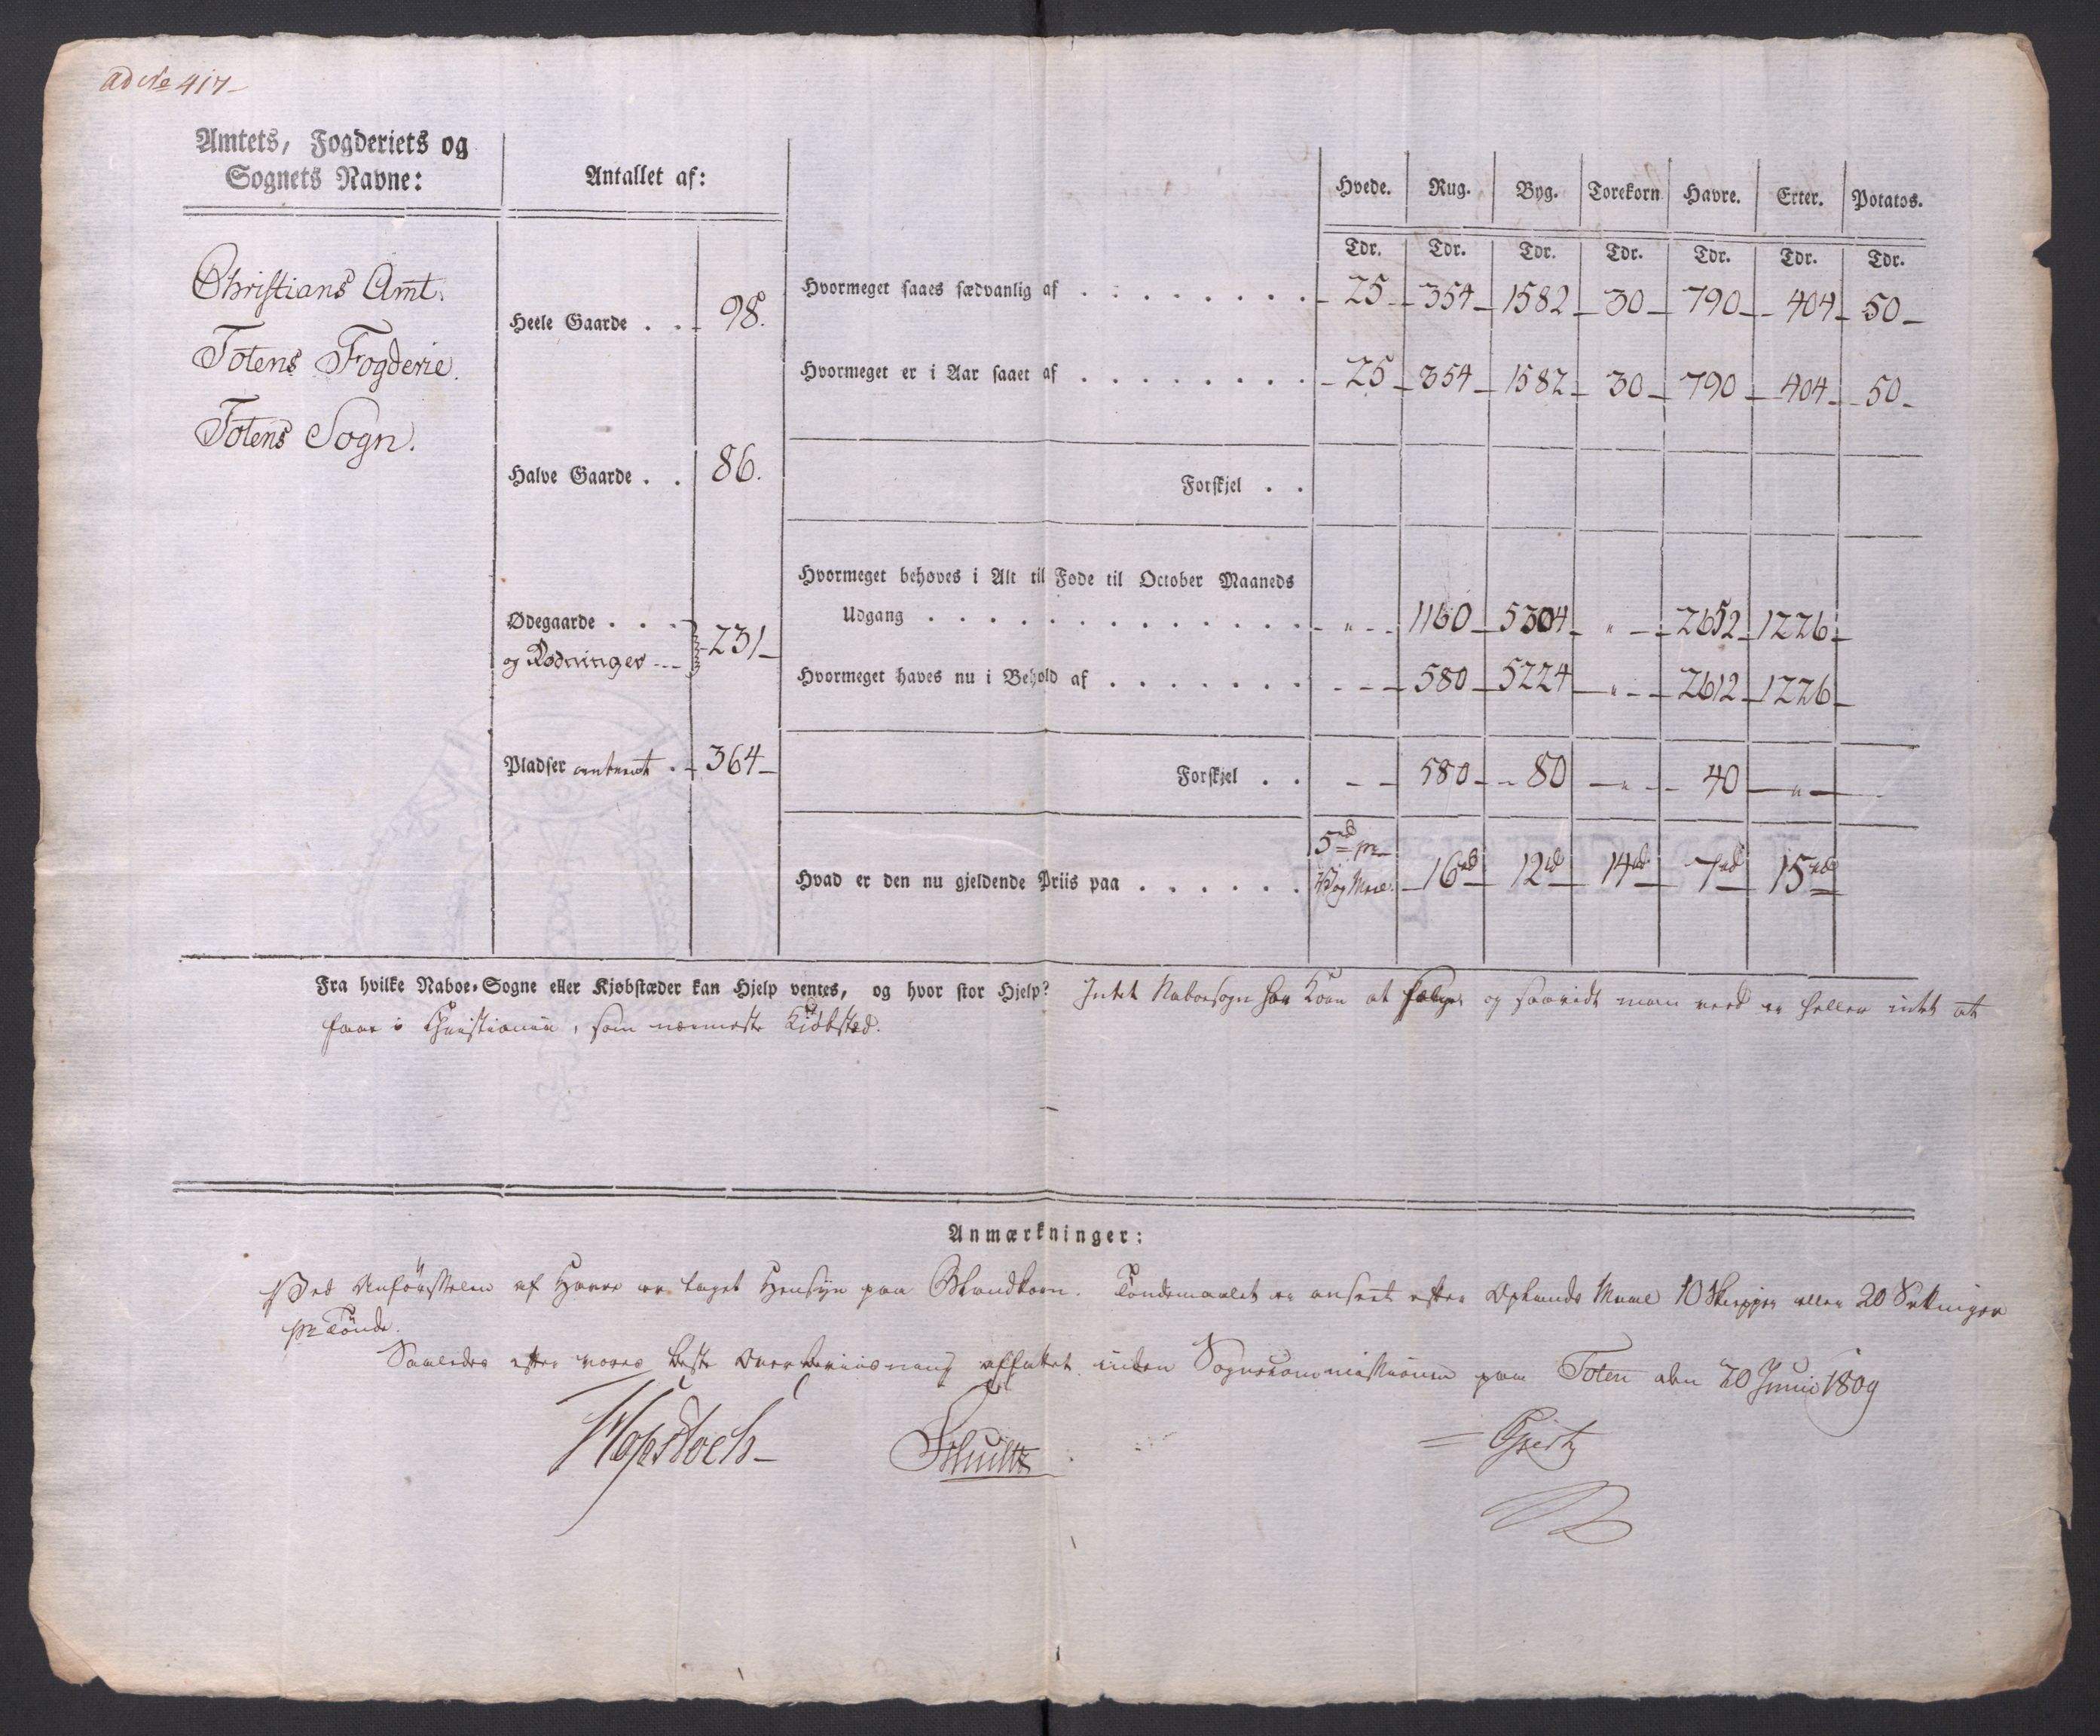 ad No 417
Amtets, Fogderiets og
Sognets Navne:
Antallet af:
Hvede. Rug. Byg. Torekorn Havre. Erter. Potatos.
Tdr. Tdr. Tdr. Tdr. Tdr. Tdr. Tdr.
Christians Amt.
Totens Fogderie.
Totens Sogn.
Heele Gaarde . . 98.
Halve Gaarde . . 86.
Ødegaarde . . .
og Rødninger --- 231
Pladser omtrent . 364
Hvormeget saaes sædvanlig af . . . . . . . . 25 354 1582 30 790 404 50
Hvormeget er i Aar saaet af . . . . . . . . 25 354 1582 30 790 404 50
Forskjel . .
Hvormeget behøves i Alt til Føde til October Maaneds
Udgang . . . . . . . . . . . . . " 1160 5304 " 2652 1226
Hvormeget haves nu i Behold af . . . . . . . - - - 580 5224 " 2612 1226
Forskjel . . - - 580 80 " 40 "
5 rd pr
Hvad er den nu gjeldende Priis paa . . . . . . 16 rd 12 rd 14 rd 7 rd 15 rd
Fra hvilke Naboe-Sogne eller Kjøbstæder kan Hjelp ventes, og hvor stor Hjelp? Intet Naboesogn har Korn at sælge og saavidt man veed er heller intet at
faae i Christiania, som nærmeste Kiöbstæd.
Anmærkninger:
Ved Anförselen af Havre er taget Hensyn paa Blandkorn. Töndemaalet er anseet efter Oplands Maal 10 Skiepper eller 20 Settinger
pr Tönde.
Saaledes efter vores beste Overbeviisning affattet inden Sognecommissionen paa Toten den 20 Junii 1809
Schultz